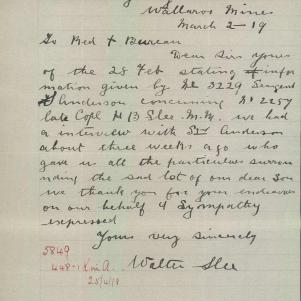 Wallaroo Mines
March 2-19
To Red + Bureau
Dear Sirs yours
of the 28 Feb stating infor
mation given by No 3229 Sergent
Anderson concerning No 2257
late Copl H B Slee. M.M. we had
a interview with Anderson
about three weeks ago who
gave us all the particulars surrou
nding the sad lot of our dear Son
we thank you for your endeavor
on our behalf & Sympathy
expressed
Yours very Sincerely
Walter Slee
5849
25/4/19